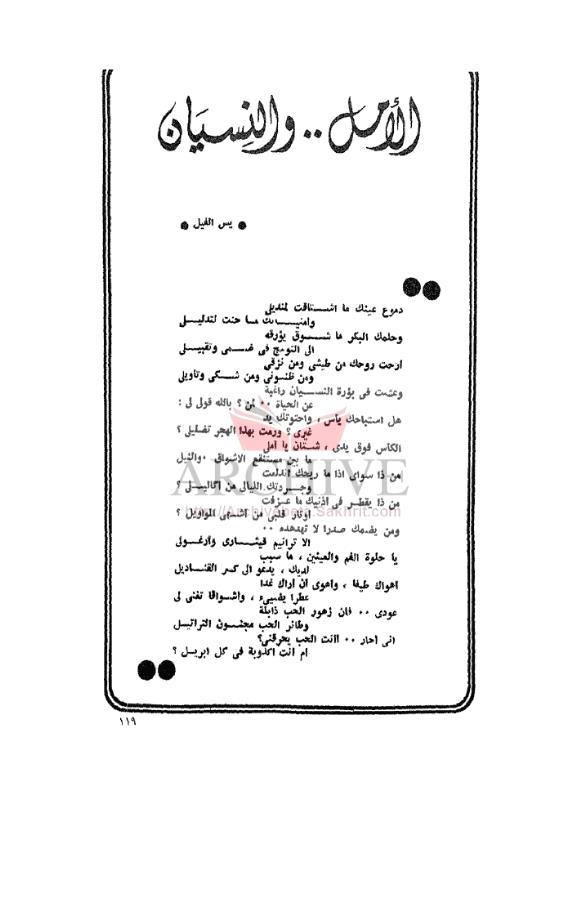 الأمل .. والنسيان
● يس الفيل ●
دموع عينك ما اشتاقت لمنديلى
وامنياتك ما حنت لتدليلى
وحلمك البكر ما شوق يؤرقه
الى التوهج فى ضمى وتقبيلى
ارحت روحك من طيشى ومن نزقى
ومن ظنونى ومن شكى وتاويلى
وعشت فى بؤرة النسيان راغبة
عن الحياة ٠٠ لمن ؟ بالله قولى لى :
هل استباحك يأس ، واحتوتك يد
غيرى ؟ ورمت بهذا الهجر تضليلى ؟
الكأس فوق يدى ، شتان يا املى
ما بين مستنقع الاشواق ٠٠ والنيل
من ذا سواى اذا ما ريحك اندلعت
وجردتك الليالى من اكاليلى ؟
من ذا يقطر فى اذنيك ما عزفت
اوتار قلبى من اشهى المواويل ؟
ومن يضمك صدرا لا تهدهده ٠٠
الا ترانيم قيثارى وارغولى
يا حلوة الفم والعينين ، ما سبب
لديك ، يدعو الى كسر القناديل
اهواك طيفا ، واهوى ان اراك غدا
عطرا يضىء ، واشواقا تغنى لى
عودى ٠٠ فان زهور الحب ذابلة
وطائر الحب مجنون التراتيل
انى احار ٠٠ اانت الحب يحرقنى؟
ام انت اكذوبة فى كل ابريل ؟
ARCHIVE
http://Archivebeta.Sakhrit.com
١١٩